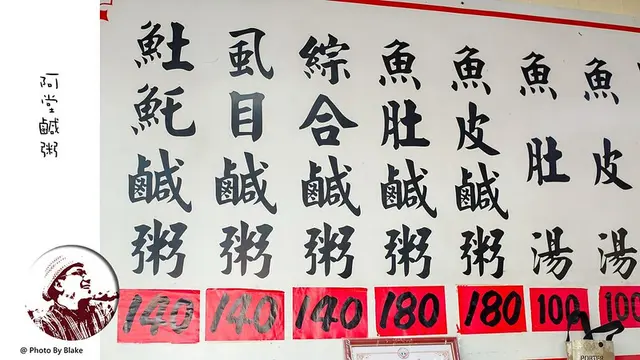 阿堂鹹粥
𩵚魠鹹粥 140
虱目鹹粥 140
綜合鹹粥 140
魚肚鹹粥 180
魚皮鹹粥 180
魚肚湯 100
魚皮湯 100
PORTER
@ Photo By Blake